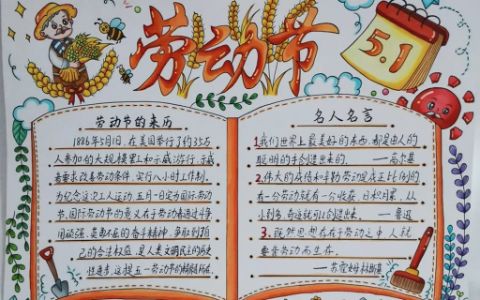 劳动节
5.1
劳动节的来历
1886年5月1日,在美国举行了约35万
人参加的大规模罢工和示威游行,示威
者要求改善劳动条件,实行八小时工作制。
为纪念这次工人运动,五月一日定为国际劳动
节。国际劳动节的意义在于劳动者通过斗争
用顽强、英勇不屈的奋斗精神,争取到自
己的合法权益,是人类文明民主的历史
性进步,这就是五一劳动节的精髓所在。
名人名言
1.我们世界上最美好的东西,都是由人的
聪明的手创造出来的。——高尔基
2.伟大的成绩和辛勤劳动是成正比例的
有一分劳动就有一分收获,日积月累,从
少到多,奇迹就可以创造出来。——鲁迅
3.既然思想存在于劳动之中,人就
要靠劳动而生存。
——苏霍姆林斯基